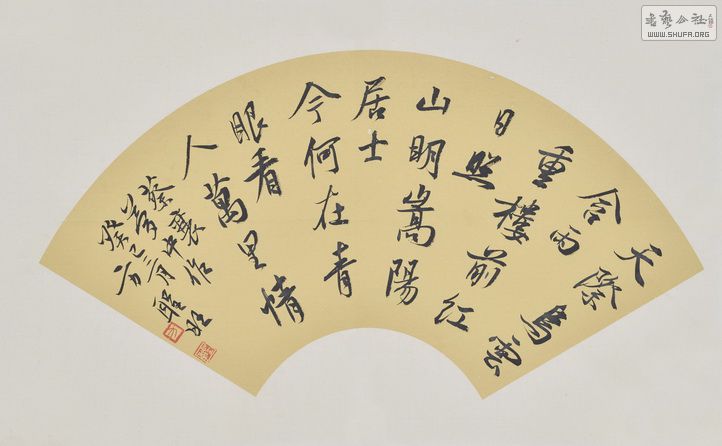 書藝公社
WWW.SHUFA.ORG
天際烏雲
含雨
重樓前紅
日照
山明嵩陽
居士
今何在青
眼看
人萬里情
蔡襄
夢中作
癸巳二月